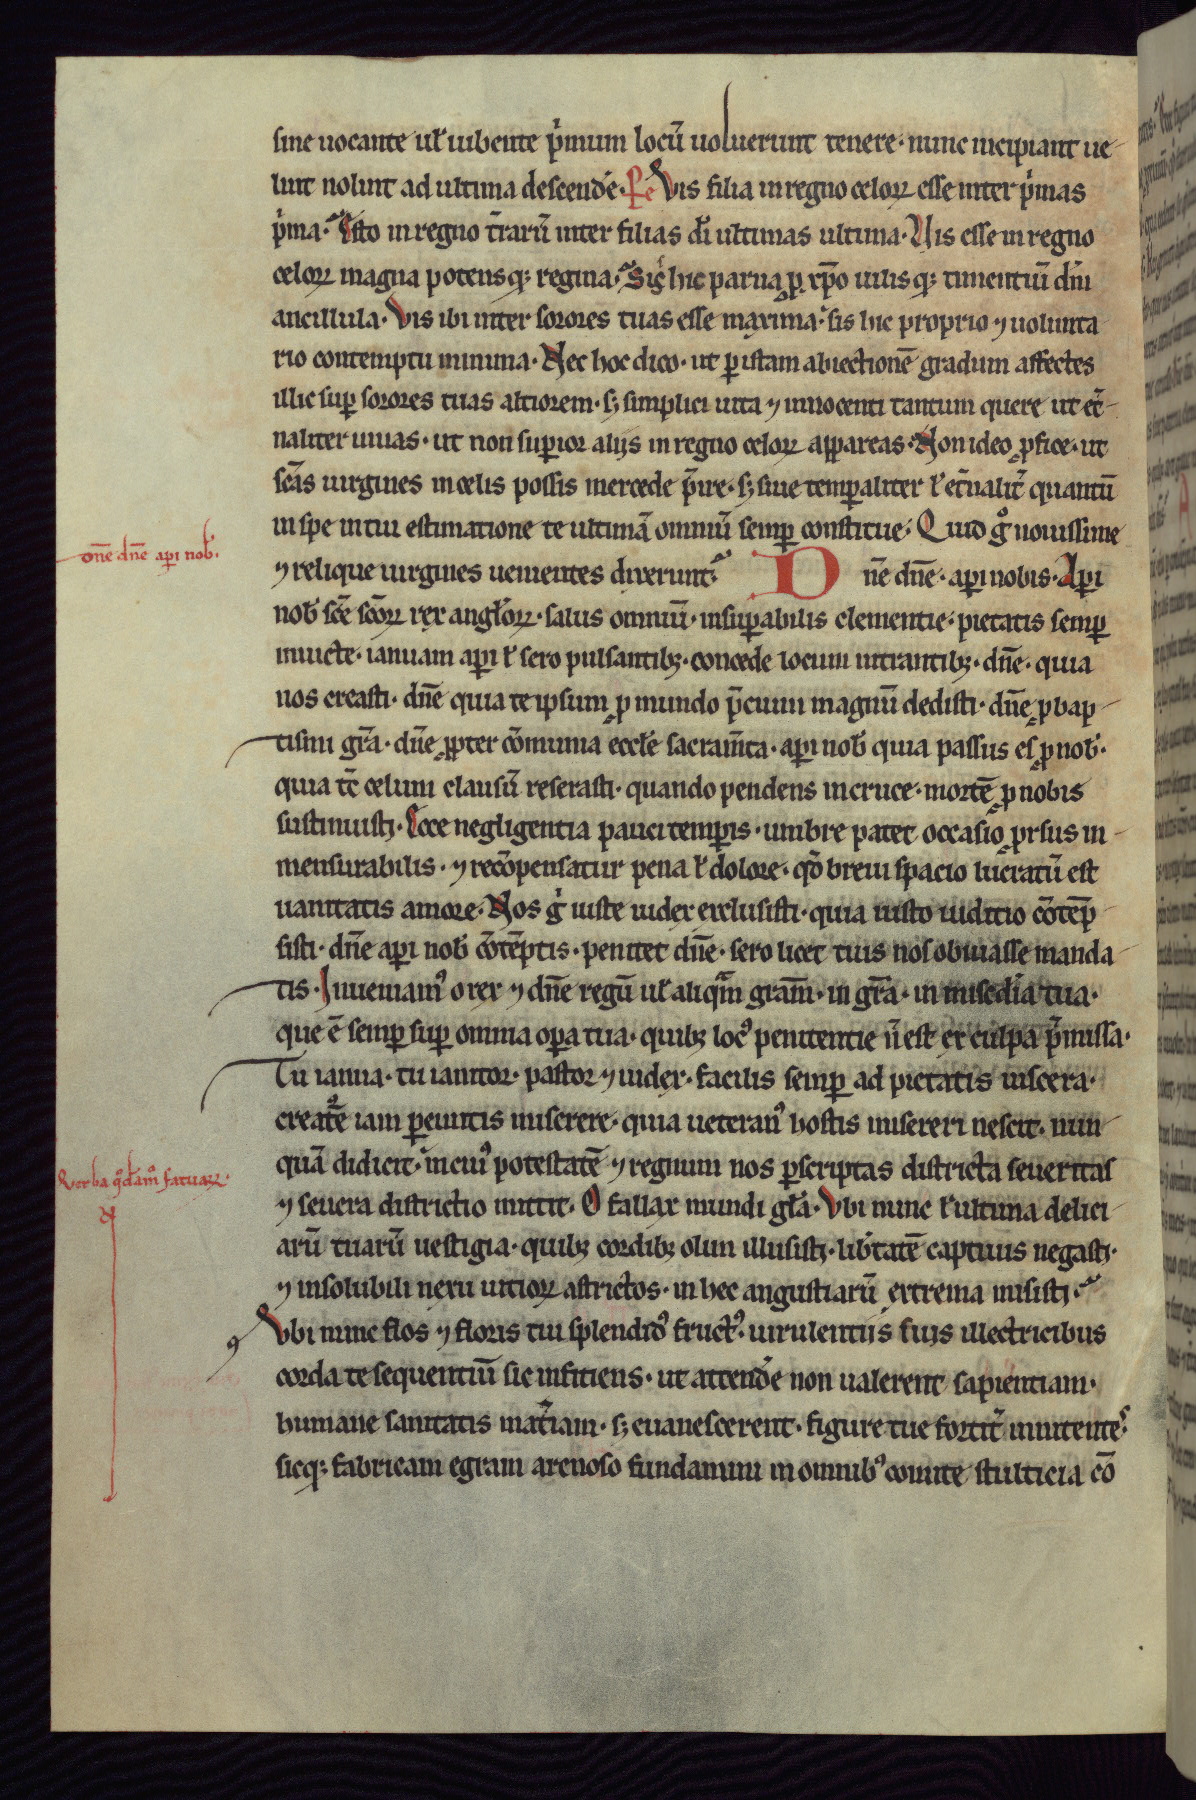 sine uocante uꝉ iubente p̾mum locū uoluerunt tenere · nunc incipiant ue
lint nolint ad ultima descend̾e · Pe Vis filia in regno celoꝝ esse inter p̾mas
p̾ma · Esto in regno t̄rarū inter filias di ultimas ultima · Uis esse in regno
celoꝝ magna potensqꝫ regina · Sis hic parua ꝓ xp̄o uilisqꝫ timentiū dn̄i
ancillula · Vis ibi inter sorores tuas esse maxima · sis hic proprio ⁊ uolunta
rio contemptu minima · Nec hoc dico · ut ꝑ istam abiectionē gradum affectes
illic suꝑ sorores tuas altiorem · sꝫ simplici uita ⁊ innocenti tantum quere ut et̾
naliter uiuas · ut non suꝑior alijs in regno celoꝝ appareas · Non ideo ꝓfice · ut
sc̄as uirgines in celis possis mercede p̄ire · sꝫ siue temꝑaliter ł et̾nalit̾ quantū
in spe in tui estimatione te ultimā omniū semꝑ constitue · Quid g̊ nouissime
⁊ relique uirgines uenientes dixerunt · Dn̄e dn̄e · aꝑi nobis · Aꝑi
nob̄ sc̄e sc̄oꝝ rex angl̄oꝝ · salus omniū · insuꝑabilis clementie · pietatis semꝑ
inuicte · ianuam aꝑi ł sero pulsantibꝫ · concede locum intrantibꝫ · dn̄e · quia
nos creasti · dn̄e quia te ipsum ꝓ mundo p̄cium magnū dedisti · dn̄e ꝓ bap
tismi gr̄a · dn̄e ꝓpter cōmunia eccl̄e sacram̄ta · aꝑi nob̄ quia passus es ꝓ nob̄ ·
quia tc̄ celum clausū reserasti · quando pendens in cruce · mortē ꝓ nobis
sustinuisti · Ecce negligentia pauci temꝑis · umbre patet occasio ꝓrsus in
mensurabilis · ⁊ recōpensatur pena ł dolore · qd̄ breui spacio luc̾atū est
uanitatis amore · Nos g̾ iuste iudex exclusisti · quia iusto iuditio cōtēp
sisti · dn̄e aꝑi nob̄ cōtēptis · penitet dn̄e · sero licet tuis nos obuiasse manda
tis · Inueniam᾿ o rex ⁊ dn̄e regū uꝉ aliqͣm gram̄ · in gr̄a · in mis̾edia tua ·
que ē semꝑ suꝑ omnia oꝑa tua · quibꝫ loc᾿ penitentie n̄ est ex culpa p̄missa ·
Tu ianua · tu ianitor · pastor ⁊ iudex · facilis semꝑ ad pietatis uiscera ·
creat̾e iam ꝑeuntis miserere · quia ueteran᾿ hostis misereri nescit · nun
quā didicit · in cui᾿ potestatē ⁊ regnum nos ꝑscriptas districta seueritas
⁊ seuera districtio mittit · O fallax mundi gl̄a · Vbi nunc ł ultima delici
arū tuarū uestigia · quibꝫ cordibꝫ olim illusisti · lib̾tatē captiuis negasti ·
⁊ insolubili nexu uitioꝝ astrictos · in hec angustiarū extrema misisti ·
Vbi nunc flos ⁊ floris tui splendid᾿ fruct᾿ · uirulentijs suis illectricibus
corda te sequentiū sic infitiens · ut attend̾e non ualerent sapientiam ·
humane sanitatis mat̾iam · sꝫ euanescerent · figure tue fortit̾ innitentes
sicqꝫ fabricam egram arenoso fundamini in omnib᾿ comite stulticia cō
dn̄e dn̄e aꝑi nob̄ ·
Verba fatuaꝝ ·